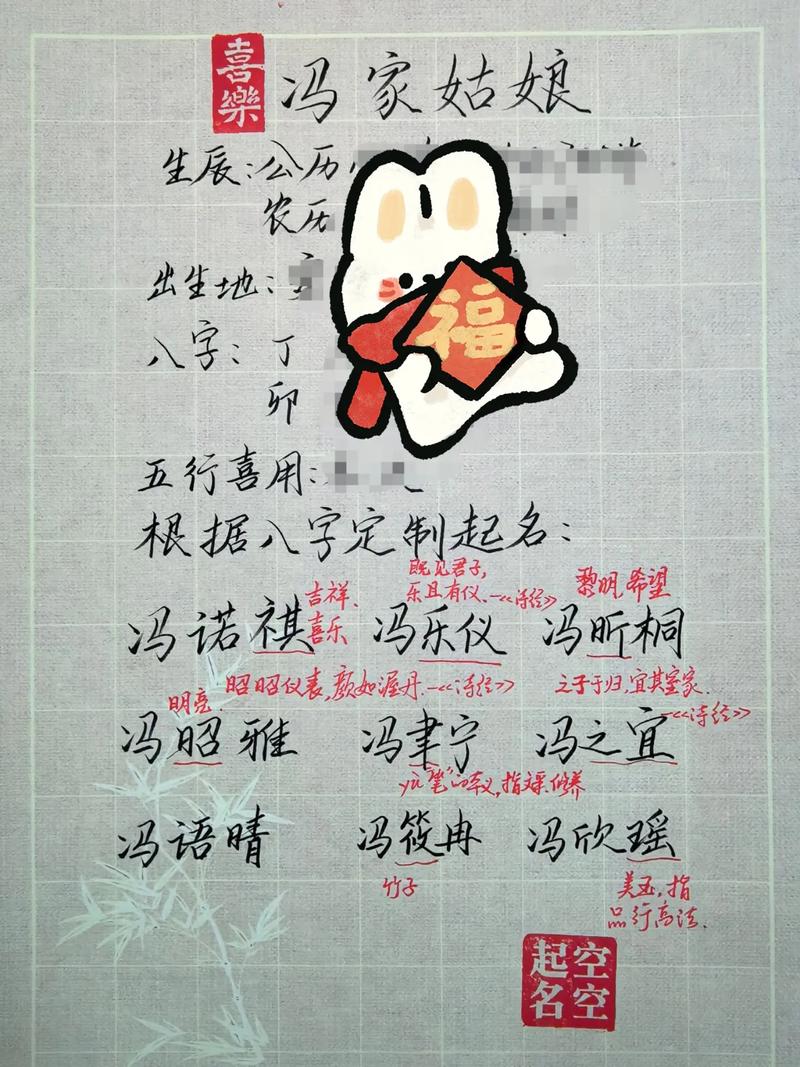 喜樂
冯家姑娘
生辰:公历
农历
福
出生地:
八字:丁
卯
五行喜用:
根据八字定制起名:
冯诺祺 吉祥、喜乐
冯乐仪 既见君子,乐且有仪.—《诗经》
冯昕桐 黎明,希望
冯昭雅 明亮. 昭昭仪表,颜如渥丹.—《诗经》
冯聿宁 "笔"的本义,指文采.修养
冯之宜 之子于归,宜其室家.—《诗经》
冯语晴
冯筱冉 竹子
冯欣瑶 美玉,指品行高洁.
空空起名